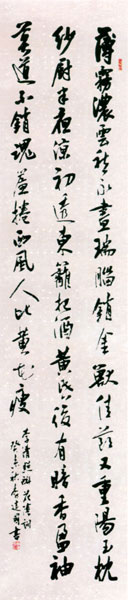 薄霧濃雲愁永晝瑞腦銷金獸佳節又重陽玉枕
紗廚半夜涼初透東籬把酒黃昏後有暗香盈袖
莫道不銷魂簾捲西風人比黃花瘦
李清照醉花陰詞
癸未秋